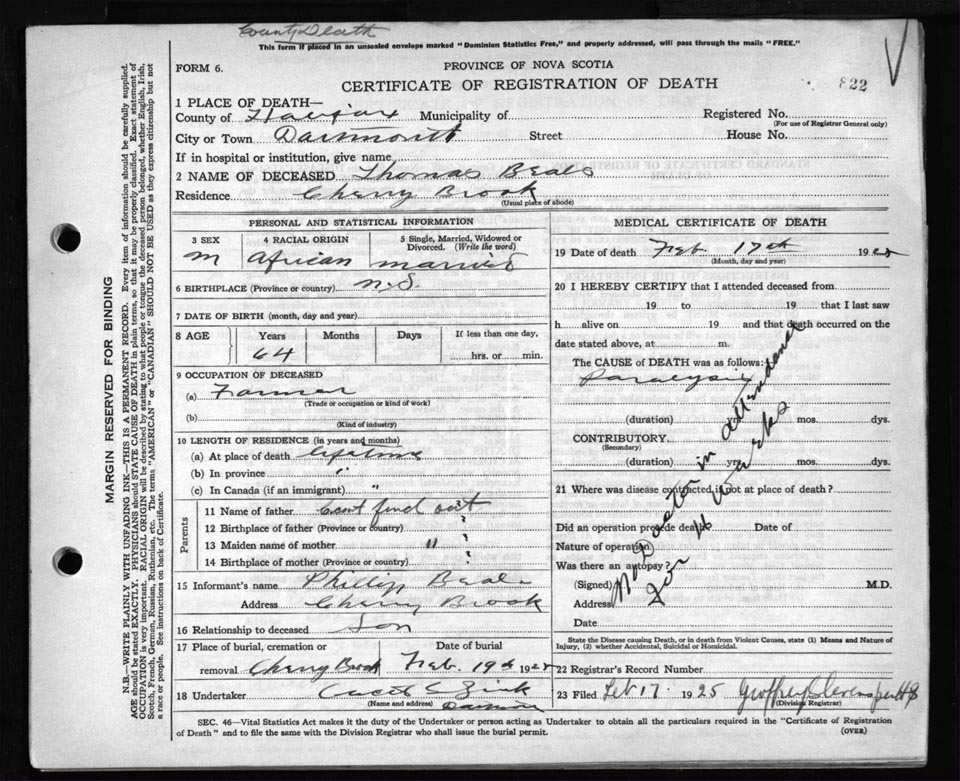 County Death
This form if placed in an unsealed envelope marked "Dominion Statistics Free," and properly addressed, will pass through the mails "FREE."
FORM 6.
PROVINCE OF NOVA SCOTIA
CERTIFICATE OF REGISTRATION OF DEATH
822
1 PLACE OF DEATH—
County of Halifax Municipality of
Registered No.
(For use of Registrar General only)
City or Town Dartmouth Street House No.
If in hospital or institution, give name
2 NAME OF DECEASED Thomas Beals
Residence Cherry Brook
(Usual place of abode)
PERSONAL AND STATISTICAL INFORMATION
3 SEX
M
4 RACIAL ORIGIN
African
5 Single, Married, Widowed or Divorced. (Write the word)
married
6 BIRTHPLACE (Province or country) N.S.
7 DATE OF BIRTH (month, day and year)
8 AGE Years Months Days If less than one day,
64 hrs. or min.
9 OCCUPATION OF DECEASED
(a) Farmer
(Trade or occupation or kind of work)
(b)
(Kind of industry)
10 LENGTH OF RESIDENCE (in years and months)
(a) At place of death lifetime
(b) In province "
(c) In Canada (if an immigrant) "
Parents
11 Name of father Cant find out
12 Birthplace of father (Province or country) ?
13 Maiden name of mother " ?
14 Birthplace of mother (Province or country) ?
15 Informant's name Phillip Beals
Address Cherry Brook
16 Relationship to deceased Son
17 Place of burial, cremation or removal Cherry Brook
Date of burial
Feb. 19th 1925
18 Undertaker Zink
(Name and address)
MEDICAL CERTIFICATE OF DEATH
19 Date of death Feb 17th 1925
(Month, day and year)
20 I HEREBY CERTIFY that I attended deceased from
19 to 19 that I last saw
h alive on 19 and that death occurred on
date stated above, at m.
The CAUSE of DEATH was as follows:
Paralysis
(duration) yrs. mos. dys.
CONTRIBUTORY
(Secondary)
(duration) yrs. mos. dys.
21 Where was disease contracted if not at place of death?
Did an operation precede death? Date of
Nature of operation
Was there an autopsy?
(Signed) M.D.
Address
Date
No Doctor in attendance
for 16 weeks
State the Disease causing Death, or in death from Violent Causes, state (1) Means and Nature of Injury, (2) whether Accidental, Suicidal or Homicidal.
22 Registrar's Record Number
23 Filed Feb 17 1925 Geoffrey Stevens
(Division Registrar)
SEC. 46—Vital Statistics Act makes it the duty of the Undertaker or person acting as Undertaker to obtain all the particulars required in the "Certificate of Registration
of Death" and to file the same with the Division Registrar who shall issue the burial permit.
(OVER)
MARGIN RESERVED FOR BINDING
N.B.—WRITE PLAINLY WITH UNFADING INK—THIS IS A PERMANENT RECORD. Every item of information should be carefully supplied.
AGE should be stated EXACTLY. PHYSICIANS should STATE CAUSE OF DEATH in plain terms, so that it may be properly classified. Exact statement of
OCCUPATION is very important. RACIAL ORIGIN will be described by stating to what people or tongue the deceased person belonged, whether English, Irish,
Scotch, French, German, Russian, Ruthenian, etc. The terms "AMERICAN" or "CANADIAN" SHOULD NOT BE USED as they express citizenship but not
a race or people. See instructions on back of Certificate.